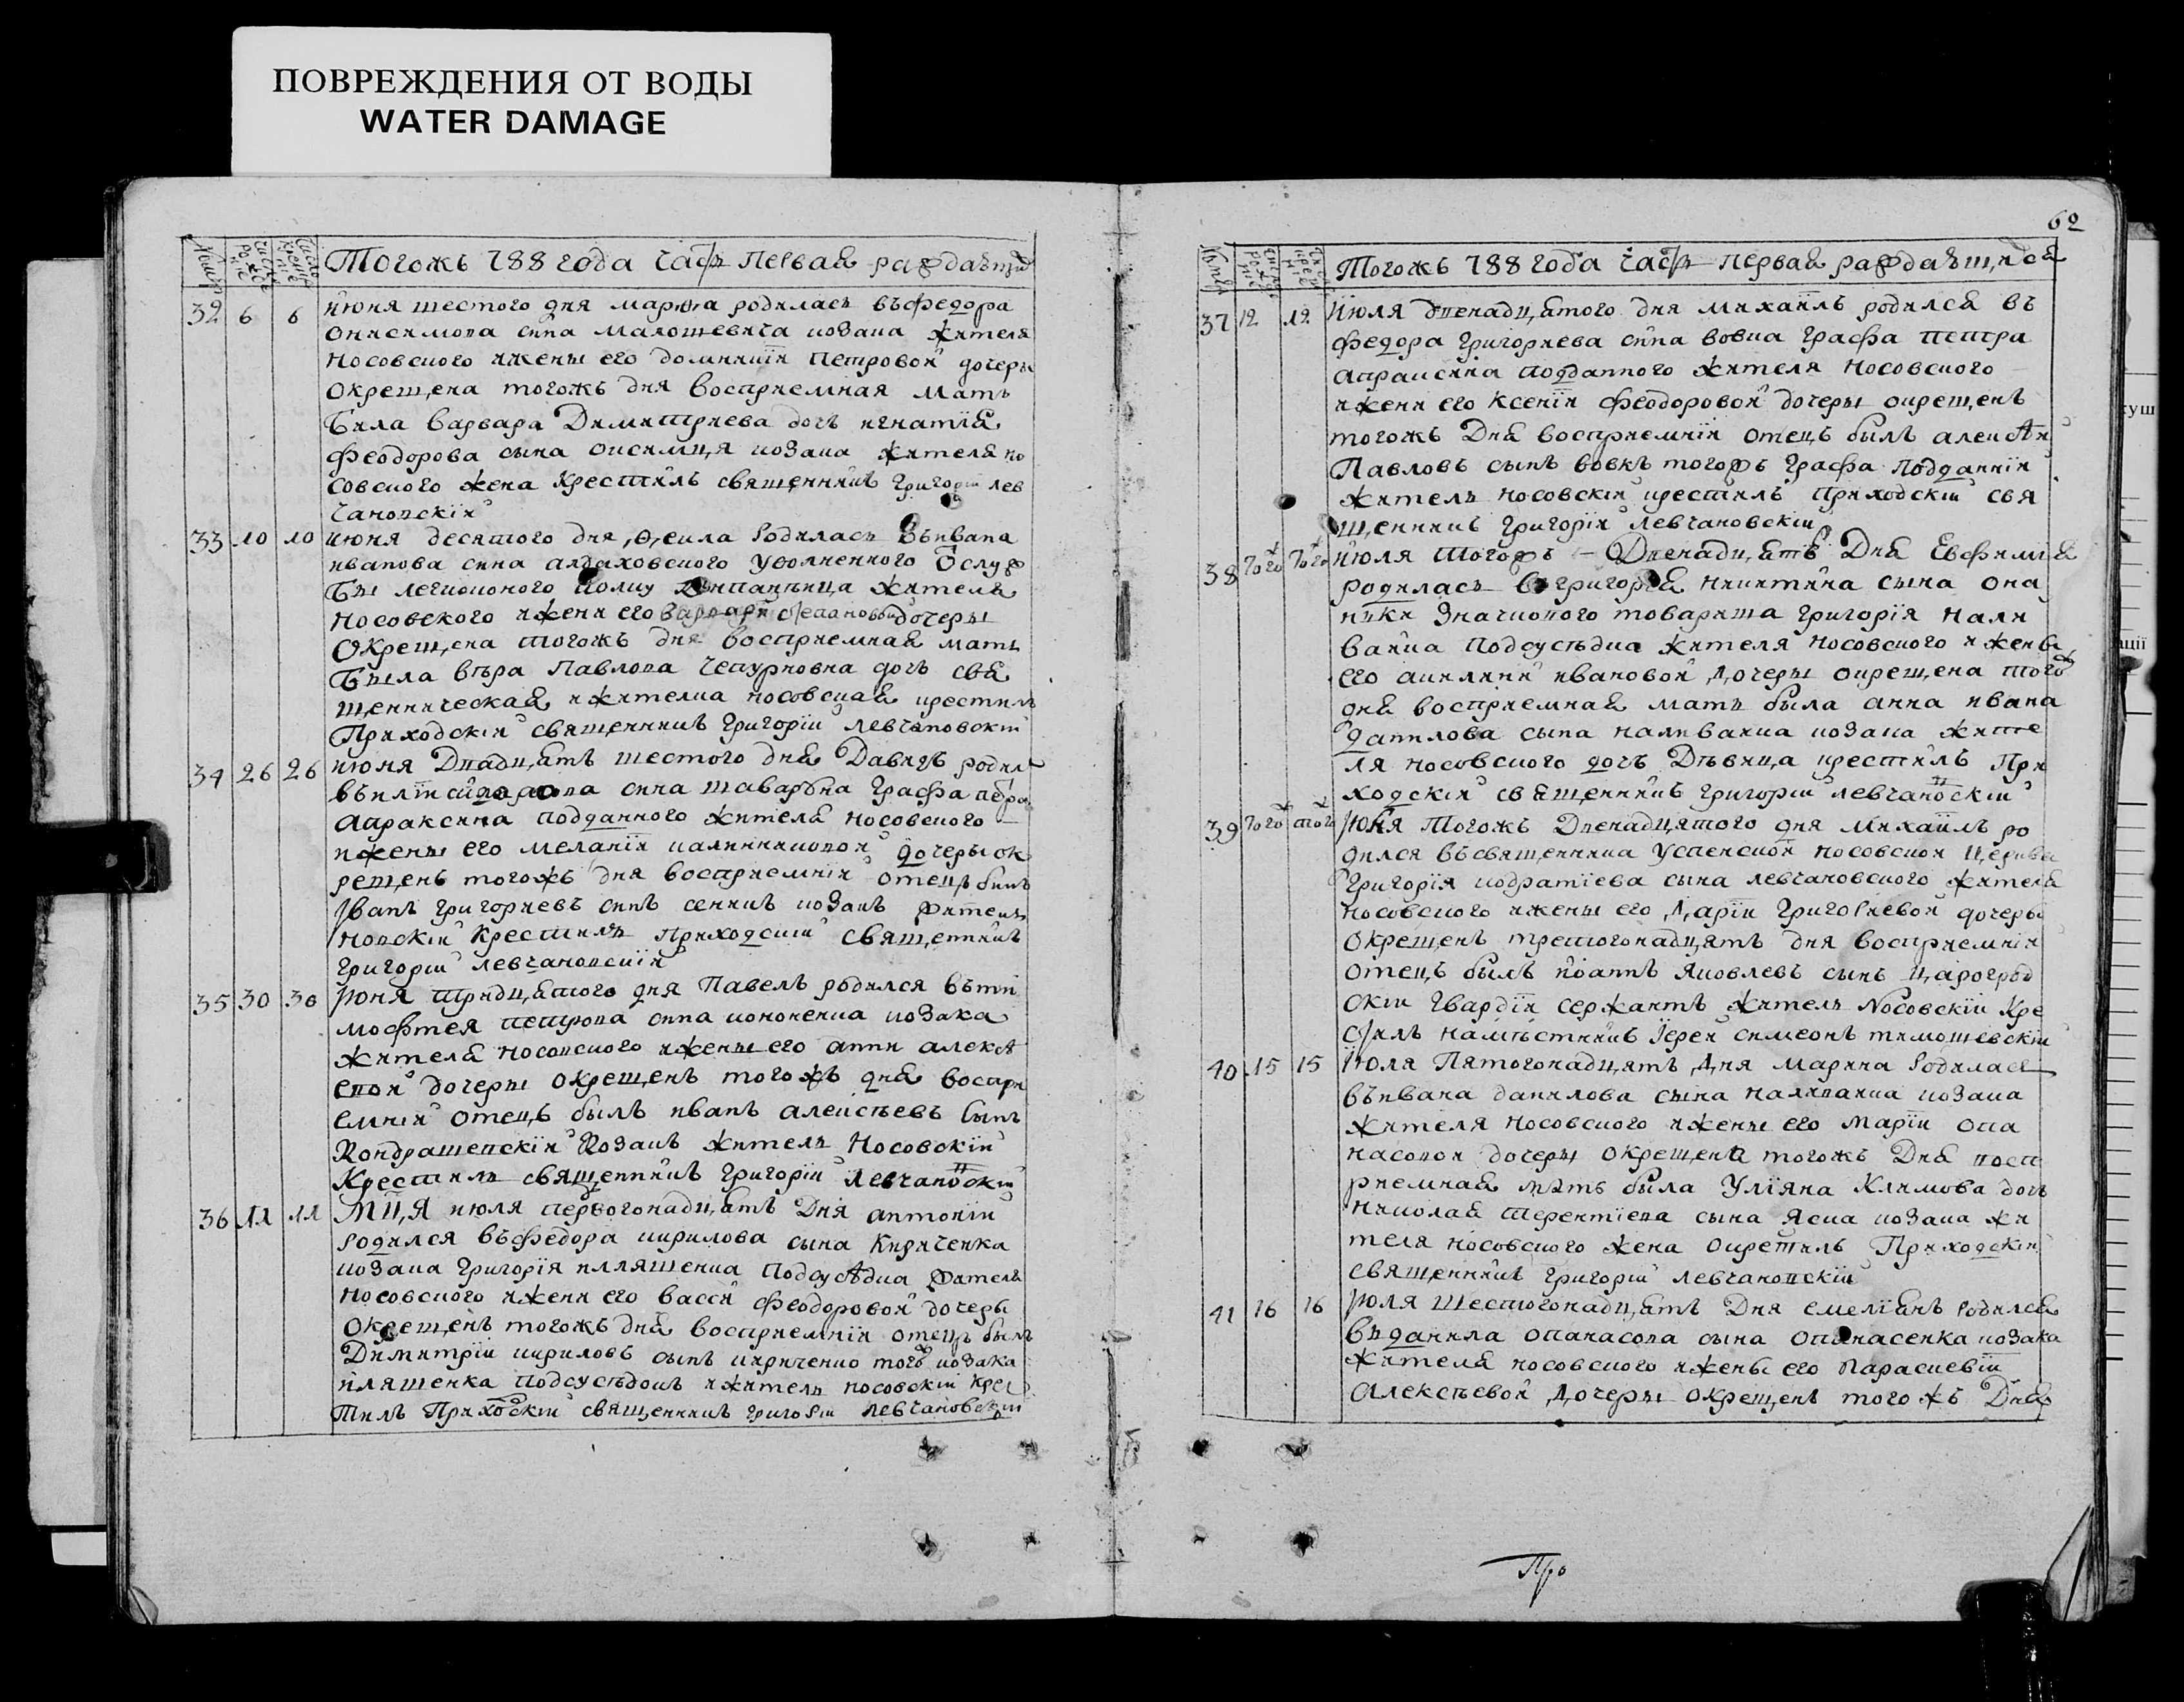 ПОВРЕЖДЕНИЯ ОТ ВОДЫ
WATER DAMAGE
62
Тогожъ 788 года часть первая
32 6 6 июня шестого дня родилась въ федора
онисимова сина козака жителя
носовского и жены его домникіи петровой дочеры
окрещена тогожъ дня восприемная мать
била варвара Димитриева дочь игнатія
феодорова сына козака жителя но
совского жена крестилъ священникъ григорій лев
чановскій
33 10 10 июня десятого дня родилась въ ивана
иванова сина уволненного
жителя
носовского и жени его дочеры
окрещена тогожъ дня восприемная мать
была вѣра Павлова дочь свя
щенническая и жителка носовская крестилъ
Приходскій священникъ григорій левчановскій
34 26 26 июня Двадцать шестого дня Давидъ родил
сина графа петра
апраксина подданного жителя носовского
и жены его меланіи дочеры ок
рещенъ тогожъ дня восприемній отецъ билъ
Иванъ григориевъ синъ козакъ жителъ
крестилъ приходскій священникъ
григорій левчановскій
35 30 30 Июня тридцятого дня Павелъ родился въ ти
мофтея петрова сина кононенка козака
жителя носовского и жены его анни алексѣ
евой дочеры окрещенъ тогожъ дня воспри
емній отецъ былъ иванъ алексѣевъ сынъ
Кондрашевскій козакъ жителъ носовскій
Крестилъ священникъ григорій левчановскій
36 11 11 Мця июля первогонадцать дня антоній
родился въ федора кирилова сына Кириченка
козака григорія илляшенка подсусѣдка жителя
носовского и жени его васси феодоровой дочеры
окрещенъ тогожъ дня восприемній отецъ былъ
Димитрій кириловъ сынъ кириченко того козака
иляшенка подсусѣдокъ и житель носовскій крес
тилъ приходскій священникъ григорій левчановскій
Тогожъ 788 года часть первая
37 12 12 Июля двенадцятого дня михаилъ родился въ
федора григориева сина вовка графа петра
апраксина подданного жителя носовского
и жени его ксеніи феодоровой дочеры окрещенъ
тогожъ Дня восприемній отецъ былъ алексѣй
Павловъ сынъ вовкъ тогожъ графа подданній
житель носовскій крестилъ приходскій свя
щенникъ григорій левчановскій
38 того того июля тогожъ Двенадцать Дня Евфимія
родилась в григорія никитина сына она
значкового товариша григорія нали
вайка подсусѣдка жителя носовского и жены
его акилини ивановой дочеры окрещена тогож
дня восприемная мать была анна ивана
данилова сына наливайка козака жите
ля носовского дочь Дѣвица крестилъ при
ходскій священникъ григорій левчановскій
39 того того Июля тогожъ Двенадцятого дня михаилъ ро
дился въ священника успенской носовской церкви
григорія кодратіева сына левчановского жителя
носовского и жены его даріи григориевой дочеры
окрещенъ третогонадцять дня восприемній
отецъ былъ іоаннъ яковлевъ сынъ царогрод
скій гвардіи сержантъ житель Носовскій Кре
стилъ намѣстникъ іерей симеонъ тимошевскій
40 15 15 Июля Пятогонадцять дня марина родилася
въ ивана данилова сына наливайка козака
жителя носовского и жены его маріи опа
насовой дочеры окрещена тогожъ Дня восп
риемная мать была Уліяна Климова дочь
николая терентіева сына козака жи
теля носовского жена окрестилъ Приходскій
священникъ григорій левчановскій
41 16 16 Июля шестогонадцать Дня емеліанъ родился
въ данила опанасова сына опанасенка козака
жителя носовского и жены его парасковіи
алексѣевой дочеры окрещенъ тогожъ Дня
Про